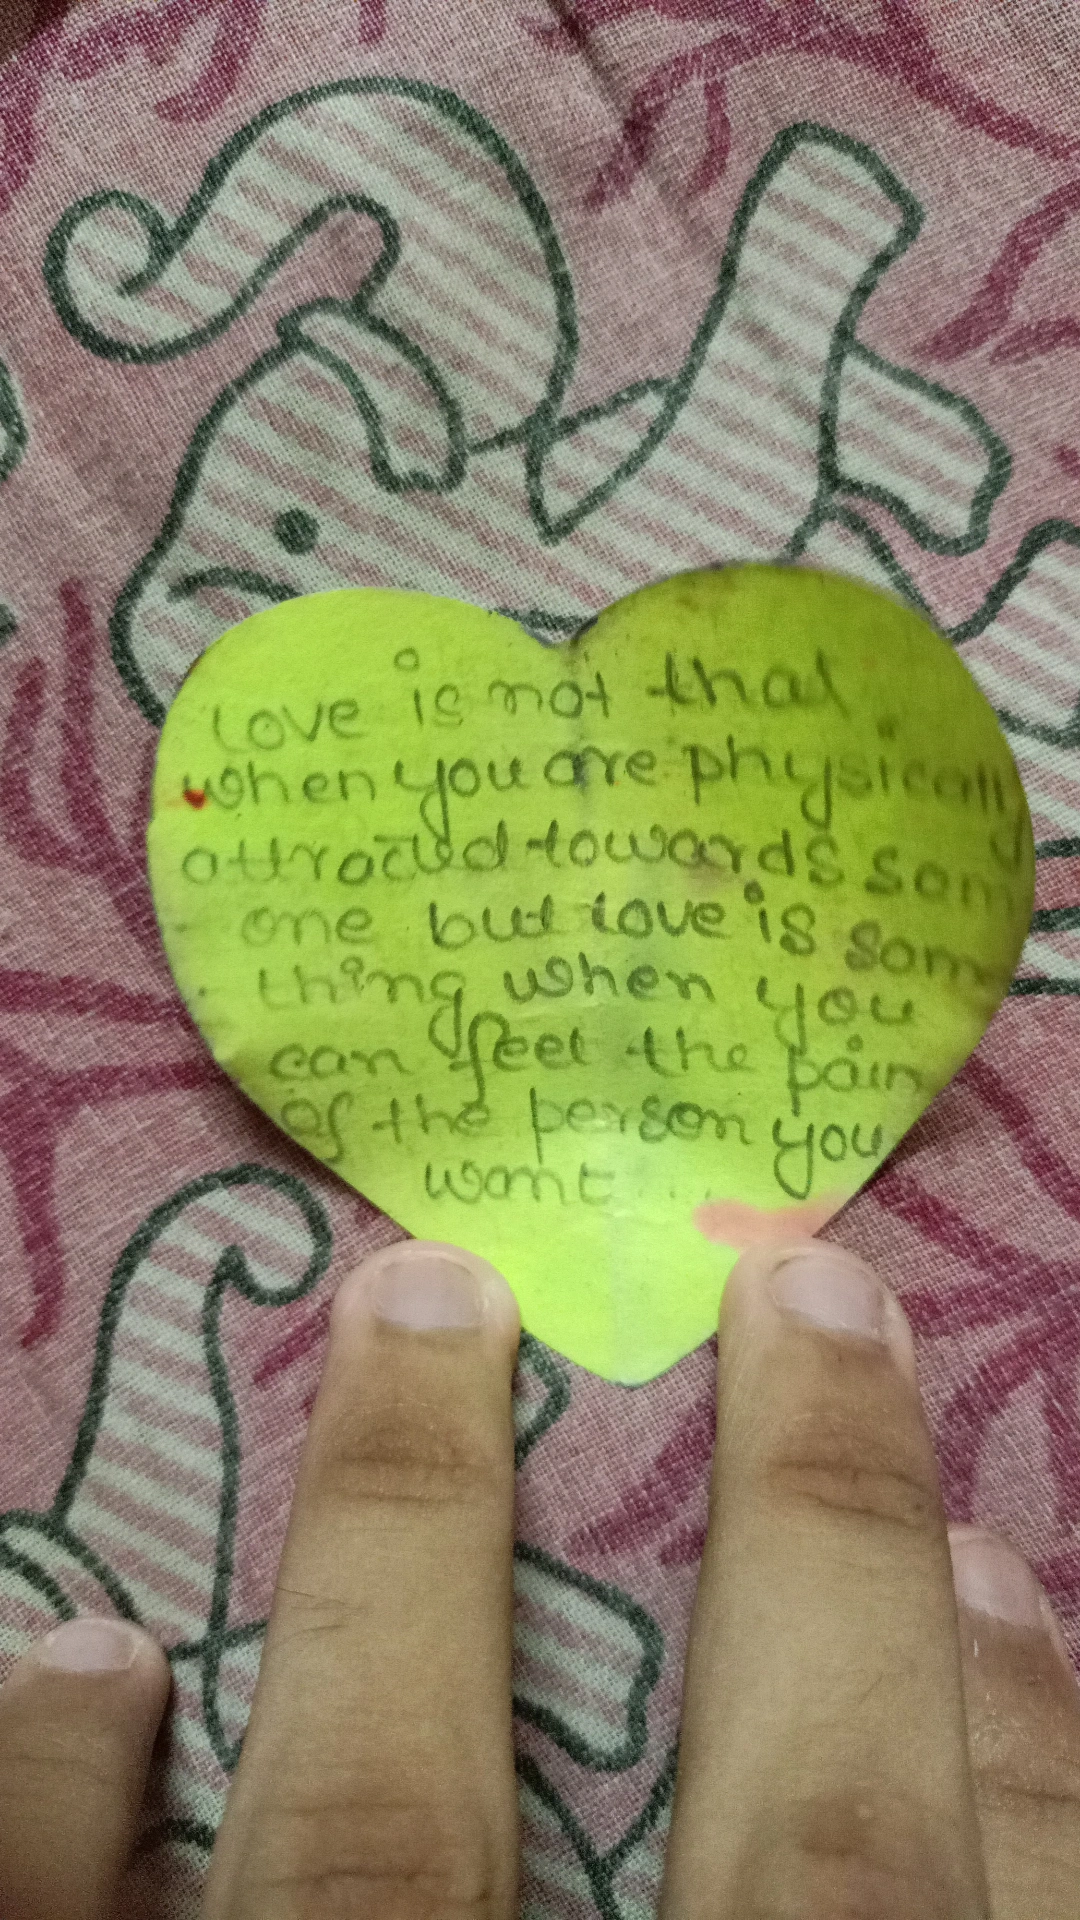 Love is not that
when you are physically
attracted towards som
one but love is som
thing when you
can feel the pain
of the person you
want....